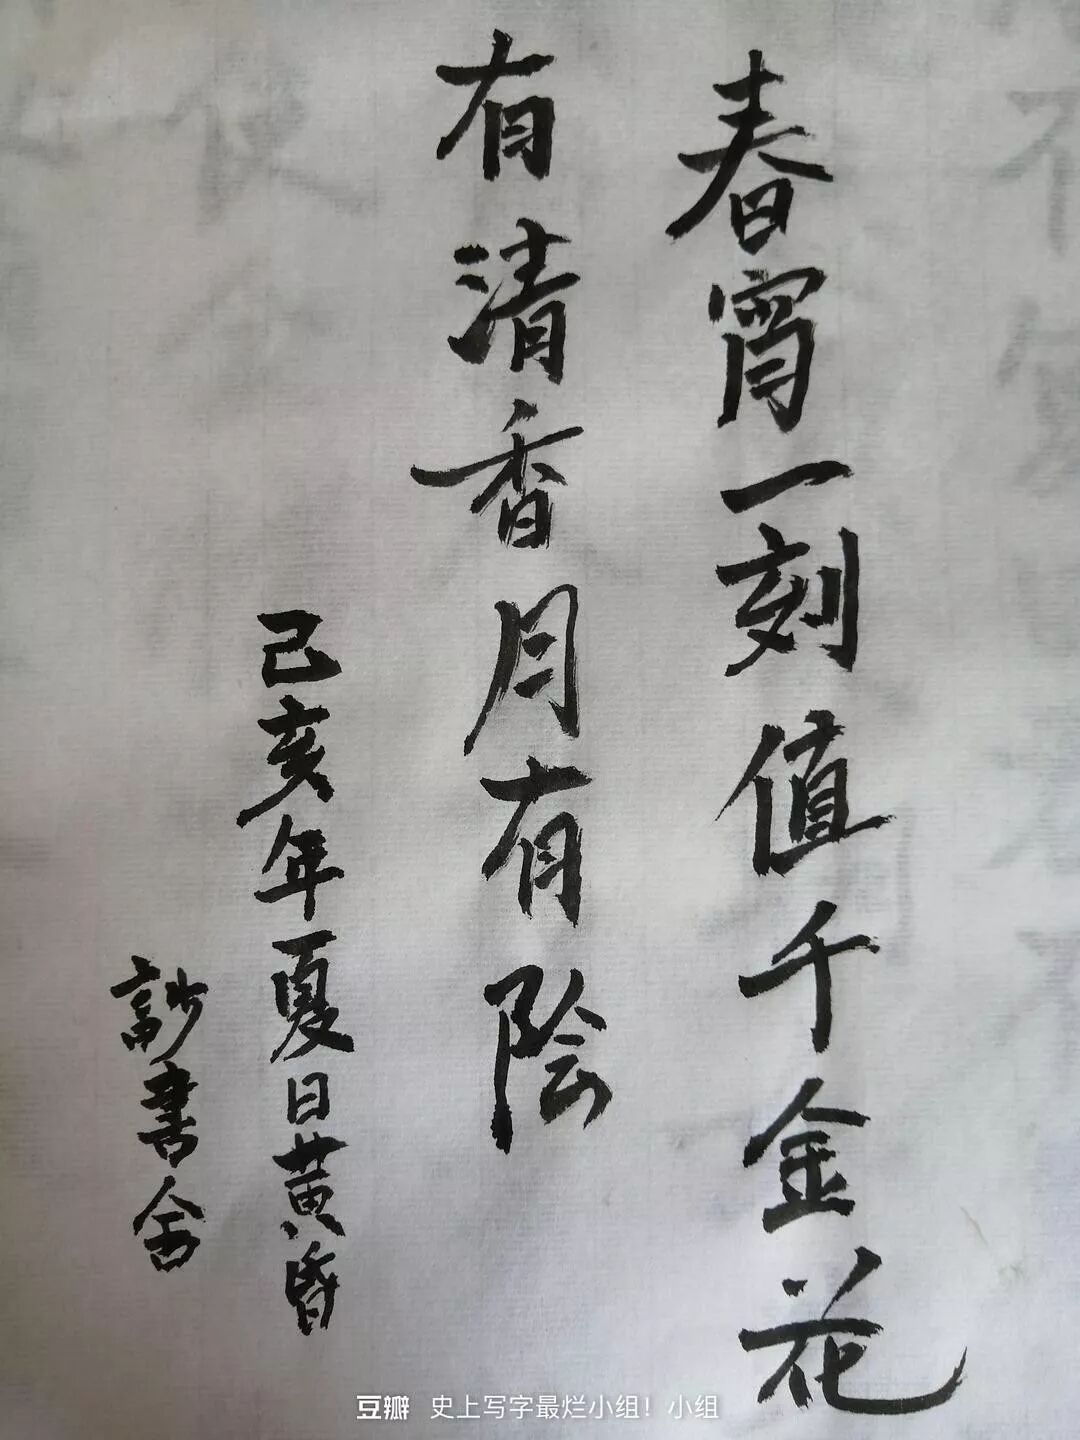 春宵一刻值千金花
有清香月有陰
己亥年夏日黄昏
書舍
豆瓣 史上写字最烂小组！小组